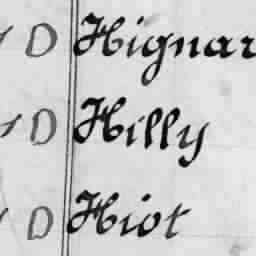 D Hignar
D Hilly
D Hiot